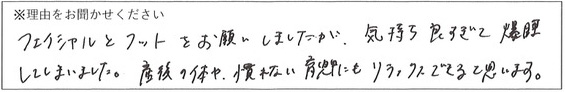 ※理由をお聞かせください
フェイシャルとフットをお願いしましたが、気持ち良すぎて爆睡
してしまいました。産後の体や、慣れない育児にもリラックスできると思います。